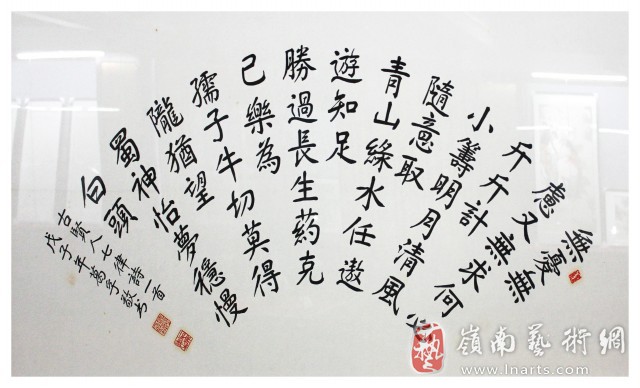 無憂無
慮又無求何必
斤斤計
小籌明月清風
隨意取
青山綠水任遨
遊知足
勝過長生葯克
己樂為
孺子牛切莫得
隴猶望
蜀神怡夢穩慢
白頭
右賢人七律詩一首
戊子年萬子敬书
藝
嶺南藝術網
www.lnarts.com